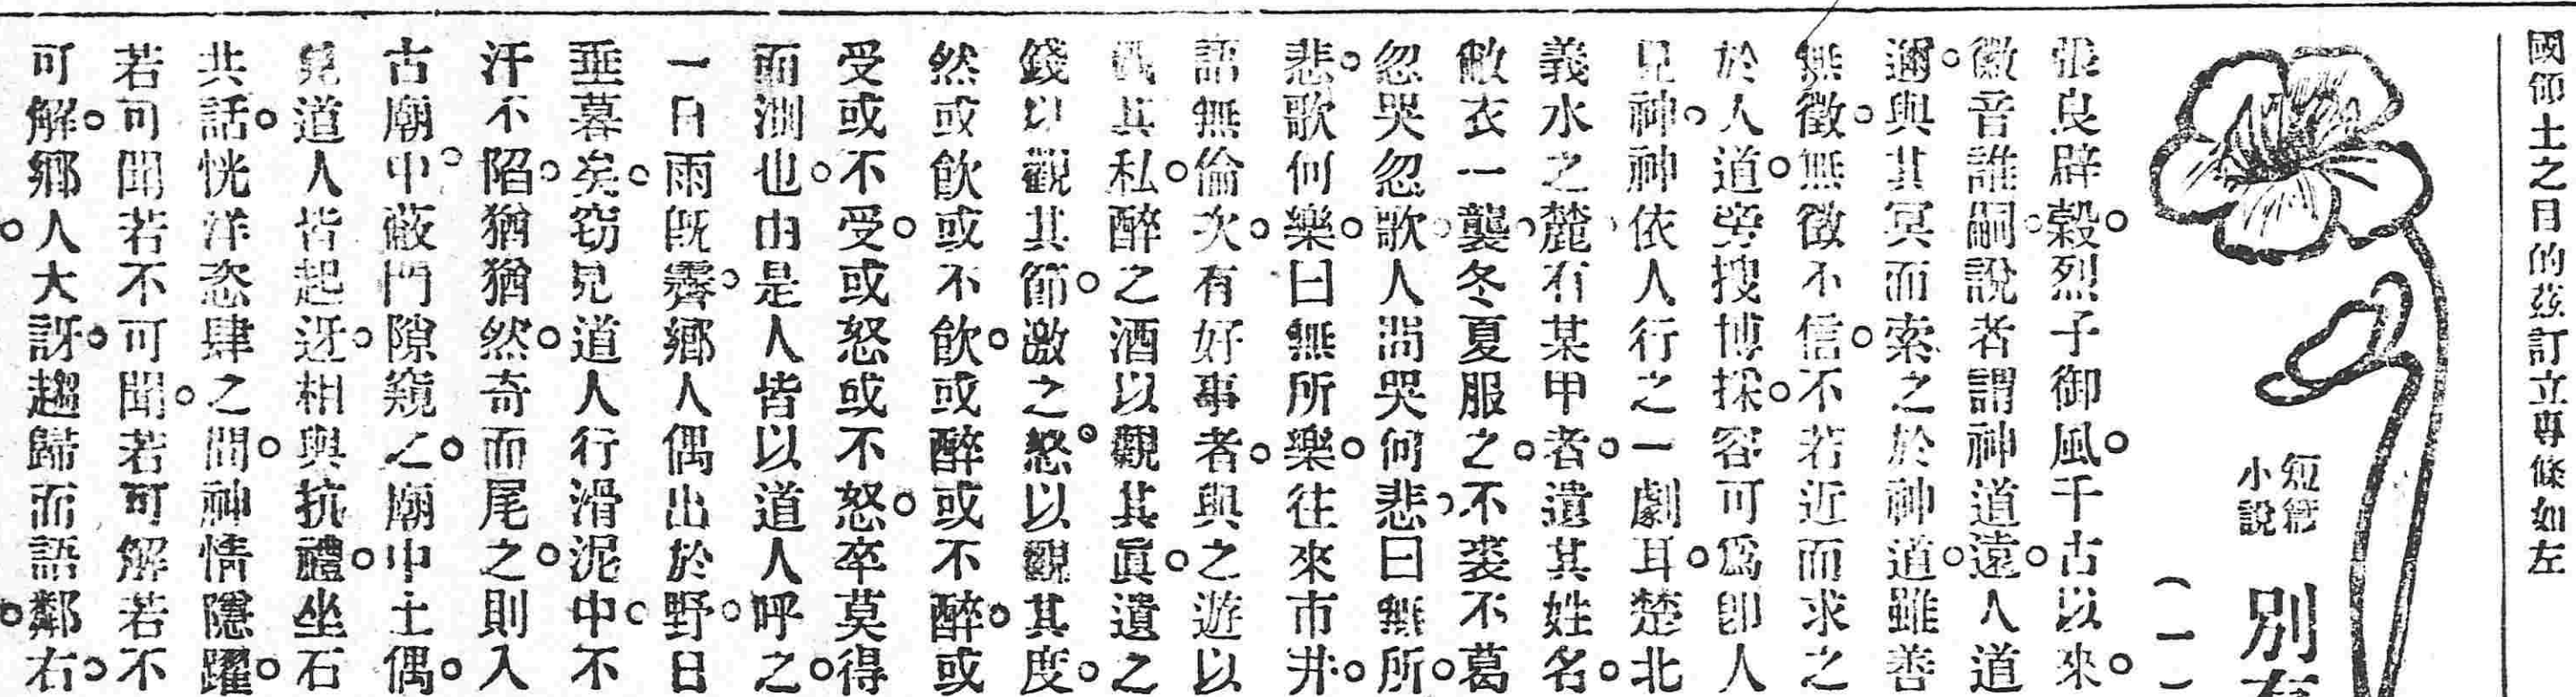 國卹士之目的茲訂立專條如左
短篇
小說
別有
(一)
張良辟穀。烈子御風。千古以來。
徽音誰嗣。說者謂神道遠。人道
邇。與其冥而索之於神道。雖善
無徵。無徵不信。不若近而求之
於人道。旁搜博採。容可爲卽人
見神。神依人行之一劇耳。楚北
義水之麓。有某甲者。遺其姓名。
敝衣一襲。冬夏服之。不裘不葛
忽哭忽歌。人問哭何悲。曰無所
悲。歌何樂。曰無所樂。往來市井。
語無倫次。有好事者。與之遊以
其私。醉之酒以觀其眞。遺之
錢以觀其節。激之怒。以觀其度。
然或飲或不飲。或醉或不醉。或
受或不受。或怒或不怒。卒莫得
而測也。由是人皆以道人呼之。
一日雨旣霽。鄉人偶出於野。日
垂暮矣。窃見道人行滑泥中。不
汗不陷。猶猶然。奇而尾之。則入
古廟中。蔽門隙窺之。廟中土偶。
見道人皆起迓。相與抗禮。坐石
共話。恍洋恣肆之間。神情隱躍。
若可聞若不可聞。若可解若不
可解。鄉人大訝。趨歸而語鄰右。